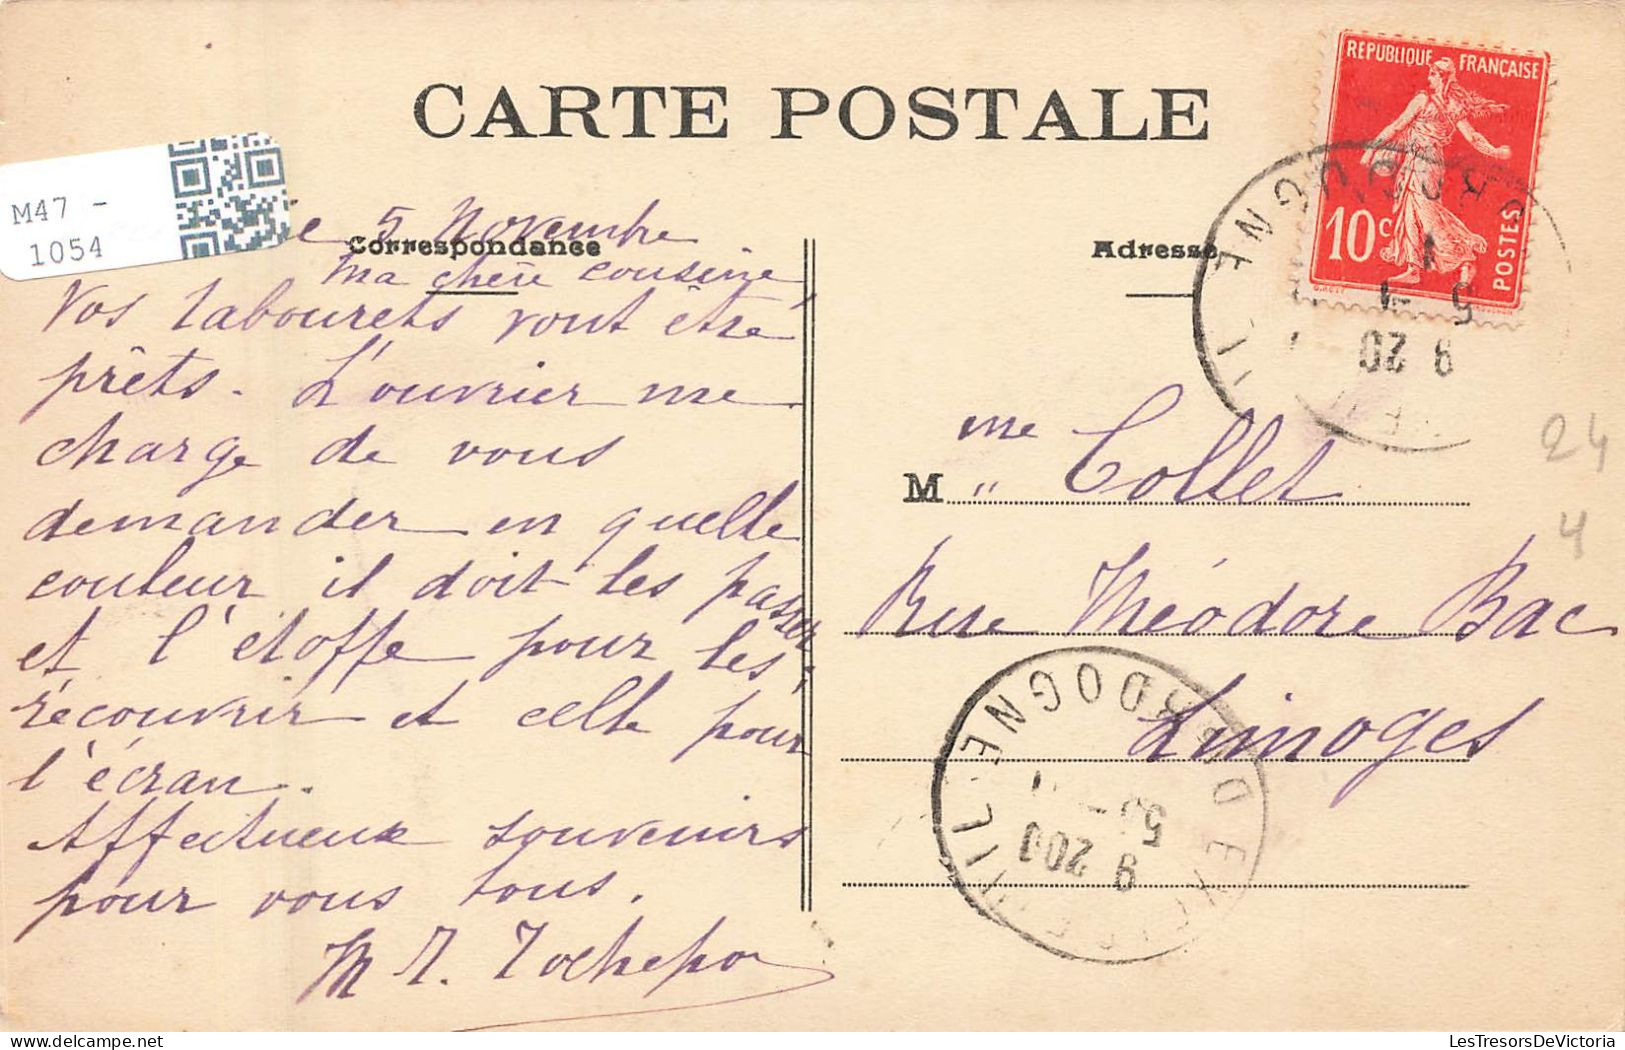 CARTE POSTALE
REPUBLIQUE FRANÇAISE
10c
POSTES
M47 -
1054
e 5 Novembre
Correspondance
Adresse
Ma chère cousine
Vos tabourets vont être
prêts. L'ouvrier me
charge de vous
demander en quelle
couleur il doit les passer
et l'étoffe pour les
recouvrir et celle pour
l'écran.
Affectueux souvenirs
pour vous tous.
M. T.
M me Collet
Rue Théodore Bac
Limoges
24
4
DORDOGNE
9 20
5
DORDOGNE
9 20
5
LesTresorsDeVictoria.com